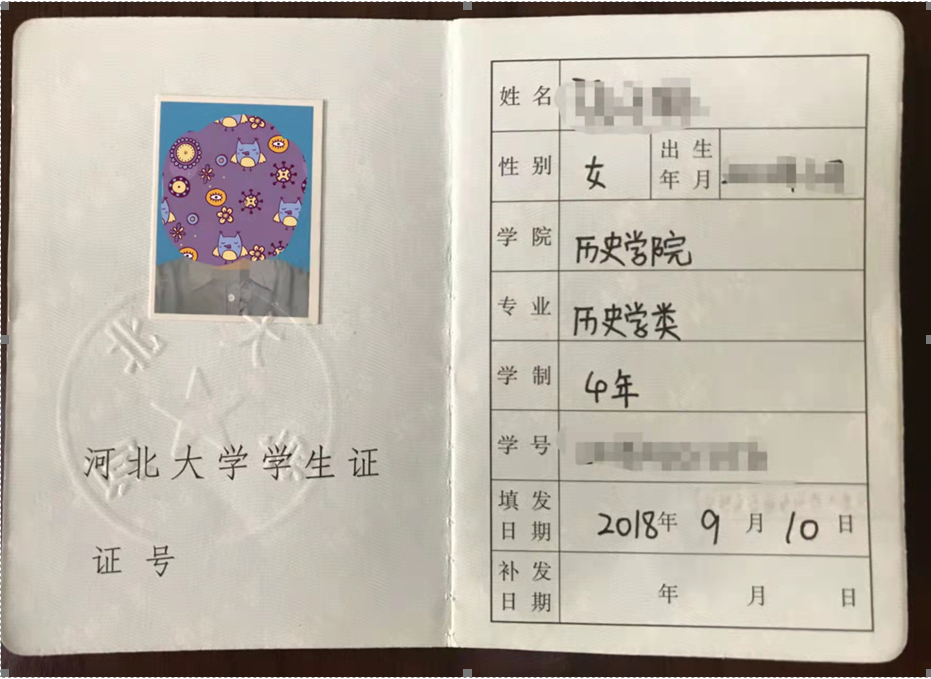 河北大学学生证
证号
姓名
性别 女 出生年月
学院 历史学院
专业 历史学类
学制 4年
学号
填发日期 2018年9月10日
补发日期 年 月 日